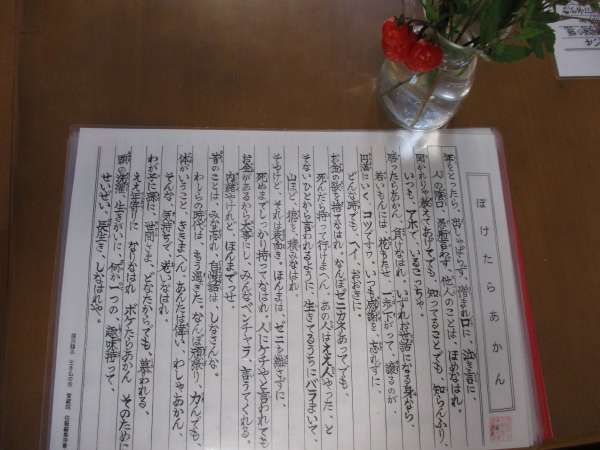 ぼけたらあかん
年をとったら、出しゃばらず、憎まれ口に、泣き言に、
人の陰口、愚痴言わず、他人のことは、ほめなはれ。
聞かれりゃ教えてあげてでも、知ってることでも、知らんふり、
いつも、アホで、いるこっちゃ。
勝ったらあかん、負けなはれ。いずれお世話になる身なら、
若いもんには、花もたせ、一歩下がって、譲るのが、
円満にいく、コツですワ。いつも感謝を、忘れずに、
どんな時でも、ヘイ、おおきに。
お金の欲を、捨てなはれ。なんぼゼニカネあってでも、
死んだら持って行けまへん。あの人はええ人やった、と
そないひとから言われるように、生きてるうちにバラまいて、
山ほど、徳を、積みなはれ。
そやけど、それは表向き、ほんまは、ゼニを離さずに、
死ぬまでしっかり持ってなはれ。人にケチやと言われても
お金があるから大事にし、みんなベンチャラ、言うてくれる。
内緒やけれど、ほんまでっせ。
昔のことは、みな忘れ、自慢話は、しなさんな。
わしらの時代は、もう過ぎた。なんぼ頑張り、力んでも、
体がいうこと、ききまへん。あんたは偉い、わしゃあかん、
そんな、気持ちで、おりなはれ。
わが子に孫に、世間さま、どなたからでも、慕われる、
ええ年寄りに、なりなはれ。ボケたらあかん、そのために、
頭の洗濯、生きがいに、何か一つの、趣味持って、
せいぜい、長生き、しなはれや。